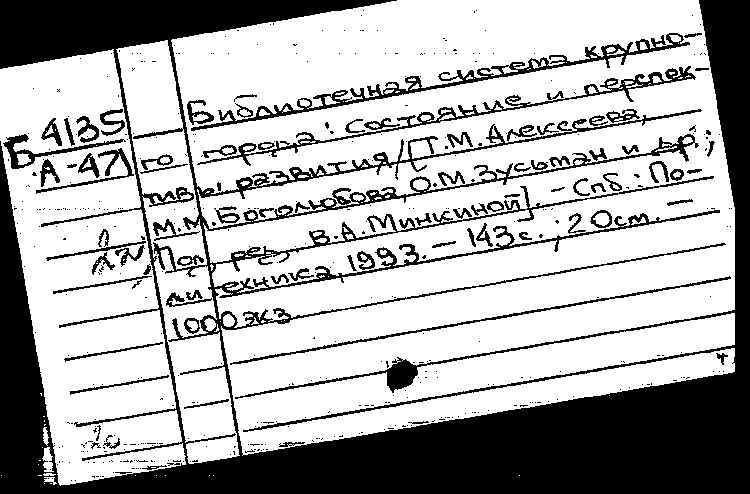 Б 4135
А-471
Библиотечная система крупно-
го города: Состояние и перспек-
тивы развития/[Т.М. Алексеева,
М.М. Боголюбова, О.М. Зусьман и др.;
Под ред. В.А. Минкиной]. - Спб.: По-
литехника, 1993. - 143с.; 20см. -
1000экз.
20